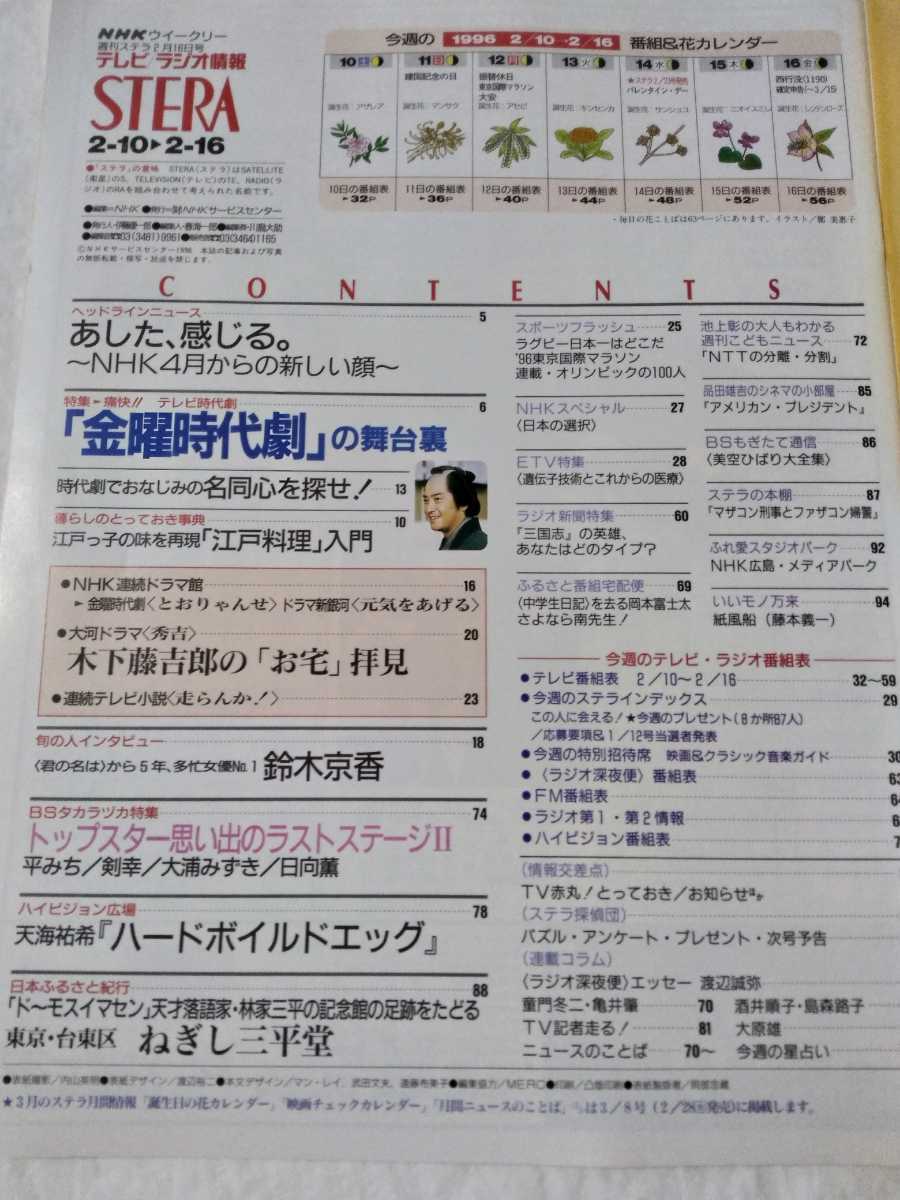 NHKウイークリー
週刊ステラ2月16日号
テレビ/ラジオ情報
STERA
2-10▶2-16
●「ステラ」の意味 STERA(ステラ)はSATELLITE
(衛星)のS、TELEVISION(テレビ)のTE、RADIO(ラ
ジオ)のRAを組み合わせて考えられた名前です。
●編集=NHK ●発行=㈶NHKサービスセンター
03(3481)9961 03(3464)1165
ⒸNHKサービスセンター1996 本誌の記事および写真
の無断転載・複写・放送を禁じます。
今週の 1996 2/10→2/16 番組&花カレンダー
10土
誕生花:アザレア
10日の番組表
►32P
11日
建国記念の日
誕生花:マンサク
11日の番組表
►36P
12月
振替休日
東京国際マラソン
大安
誕生花:アセビ
12日の番組表
►40P
13火
誕生花:キンセンカ
13日の番組表
►44P
14水
バレンタイン・デー
誕生花:サンシュユ
14日の番組表
►48P
15木
誕生花:ニオイスミレ
15日の番組表
►52P
16金
西行没(1190)
確定申告(~3/15)
誕生花:レンテンローズ
16日の番組表
►56P
・毎日の花ことばは63ページにあります。イラスト/鄭 美恵子
CONTENTS
ヘッドラインニュース 5
あした、感じる。
~NHK4月からの新しい顔~
特集►痛快!! テレビ時代劇 6
「金曜時代劇」の舞台裏
時代劇でおなじみの名同心を探せ! 13
暮らしのとっておき事典 10
江戸っ子の味を再現「江戸料理」入門
●NHK連続ドラマ館 16
►金曜時代劇〈とおりゃんせ〉ドラマ新銀河〈元気をあげる〉
●大河ドラマ〈秀吉〉 20
木下藤吉郎の「お宅」拝見
●連続テレビ小説〈走らんか!〉 23
旬の人インタビュー 18
〈君の名は〉から5年、多忙女優No.1 鈴木京香
BSタカラヅカ特集 74
トップスター思い出のラストステージII
平みち/剣幸/大浦みずき/日向薫
ハイビジョン広場 78
天海祐希『ハードボイルドエッグ』
日本ふるさと紀行 88
「ド~モスイマセン」天才落語家・林家三平の記念館の足跡をたどる
東京・台東区 ねぎし三平堂
スポーツフラッシュ 25
ラグビー日本一はどこだ
'96東京国際マラソン
連載・オリンピックの100人
NHKスペシャル 27
〈日本の選択〉
ETV特集 28
〈遺伝子技術とこれからの医療〉
ラジオ新聞特集 60
『三国志』の英雄、
あなたはどのタイプ?
ふるさと番組宅配便 69
〈中学生日記〉を去る岡本富士太
さよなら南先生!
池上彰の大人もわかる
週刊こどもニュース 72
「NTTの分離・分割」
品田雄吉のシネマの小部屋 85
『アメリカン・プレジデント』
BSもぎたて通信 86
〈美空ひばり大全集〉
ステラの本棚 87
『マザコン刑事とファザコン婦警』
ふれ愛スタジオパーク 92
NHK広島・メディアパーク
いいモノ万来 94
紙風船(藤本義一)
今週のテレビ・ラジオ番組表
●テレビ番組表 2/10~2/16 32~59
●今週のステラインデックス 29
この人に会える!★今週のプレゼント(8か所87人)
/応募要項&1/12号当選者発表
●今週の特別招待席 映画&クラシック音楽ガイド 30
●〈ラジオ深夜便〉番組表 63
●FM番組表 64
●ラジオ第1・第2情報 6
●ハイビジョン番組表 7
(情報交差点)
TV赤丸!とっておき/お知らせほか
(ステラ探偵団)
パズル・アンケート・プレゼント・次号予告
(連載コラム)
〈ラジオ深夜便〉エッセー 渡辺誠弥
童門冬二・亀井肇 70 酒井順子・島森路子
TV記者走る! 81 大原雄
ニュースのことば 70~ 今週の星占い
●表紙撮影/内山英明●表紙デザイン/渡辺裕二●本文デザイン/マン・レイ、武田文夫、遠藤布美子●編集協力/MERC●印刷/凸版印刷●表紙製版者/岡部忠蔵
★3月のステラ月間情報「誕生日の花カレンダー」「映画チェックカレンダー」「月間ニュースのことば」などは3/8号(2/28㊌発売)に掲載します。